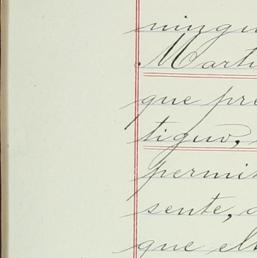 ningu
Marti
que pre
tiguo,
permit
sente, a
que el